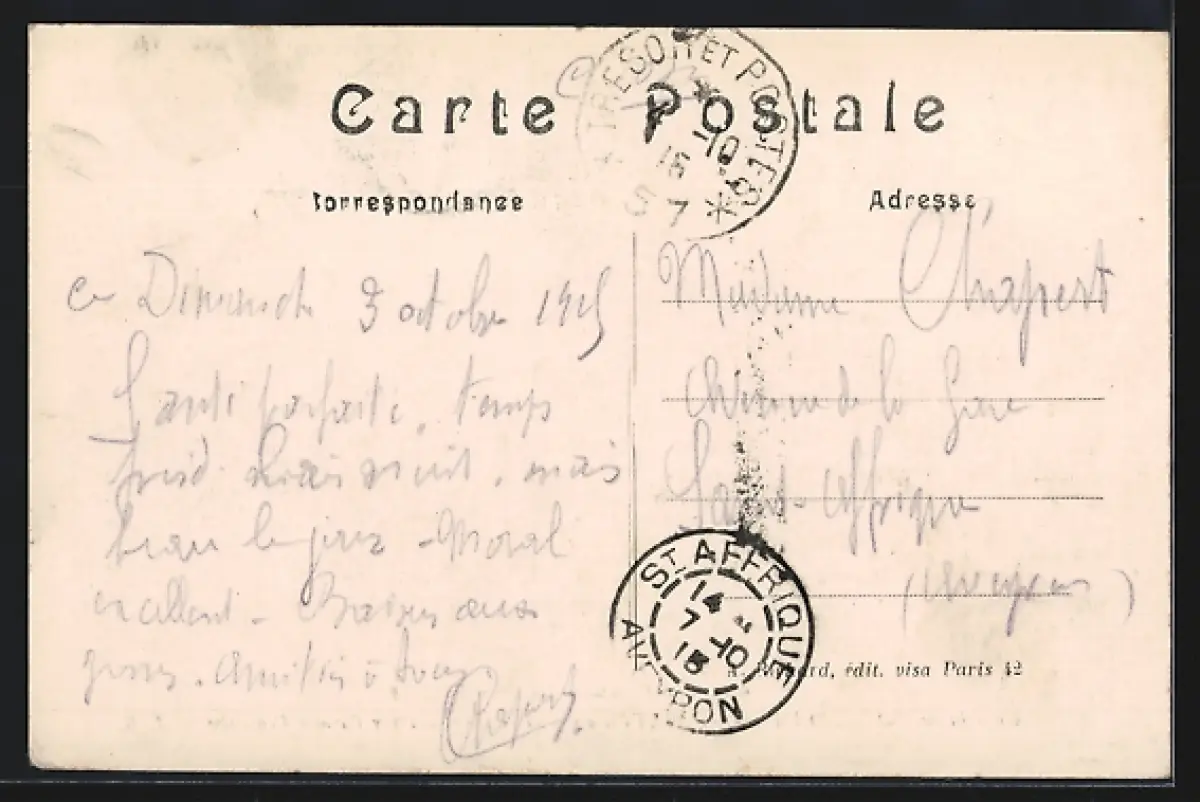 Carte Postale
TRESOR ET POSTES
-10
15
7
Correspondance
Adresse
ce Dimanche 3 octobre 1915
Santé parfaite, temps
froid la nuit, mais
beau le jour - Moral
excellent - Baisers aux
gosses. Amitiés à tous
Madame
Chemin de la Gare
Saint-Affrique
(Aveyron)
ST AFFRIQUE
14
7 -10
15
AVEYRON
édit. visa Paris 42